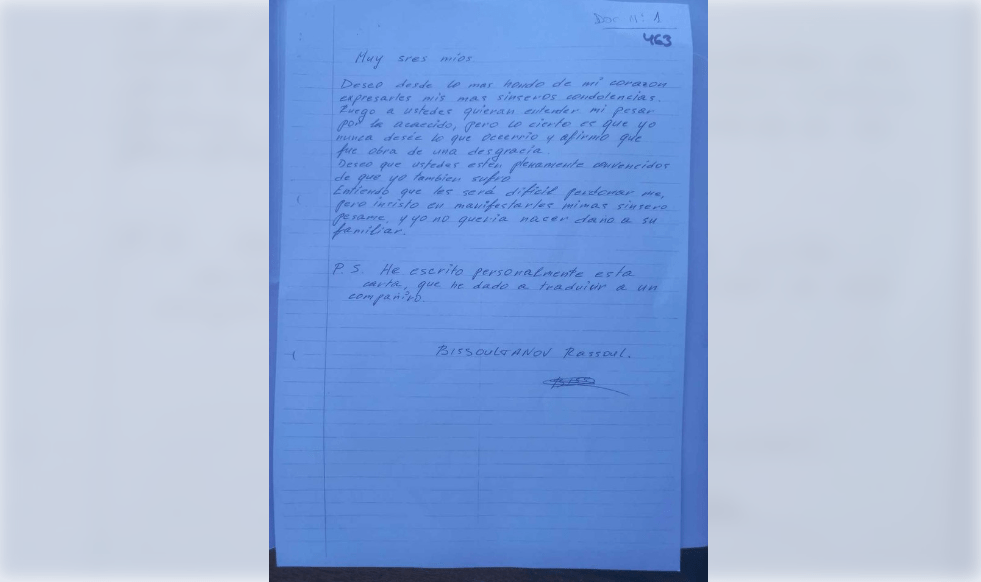 Doc Nº 1
463
Muy sres mios
Deseo desde lo mas hondo de mi corazon
expresarles mis mas sinseros condolencias.
Ruego a ustedes quieran entender mi pesar
por la acaecido, pero lo cierto es que yo
nunca deseé lo que ocurrio y afirmo que
fue obra de una desgracia.
Deseo que ustedes estén plenamente convencidos
de que yo tambien sufro
Entiendo que les será difícil perdonar me,
pero insisto en manifestarles mi mas sinsero
pesame, y yo no queria hacer daño a su
familiar.
P. S. He escrito personalmente esta
carta, que he dado a traducir a un
compañero
BISSOULTANOV Rassoul.